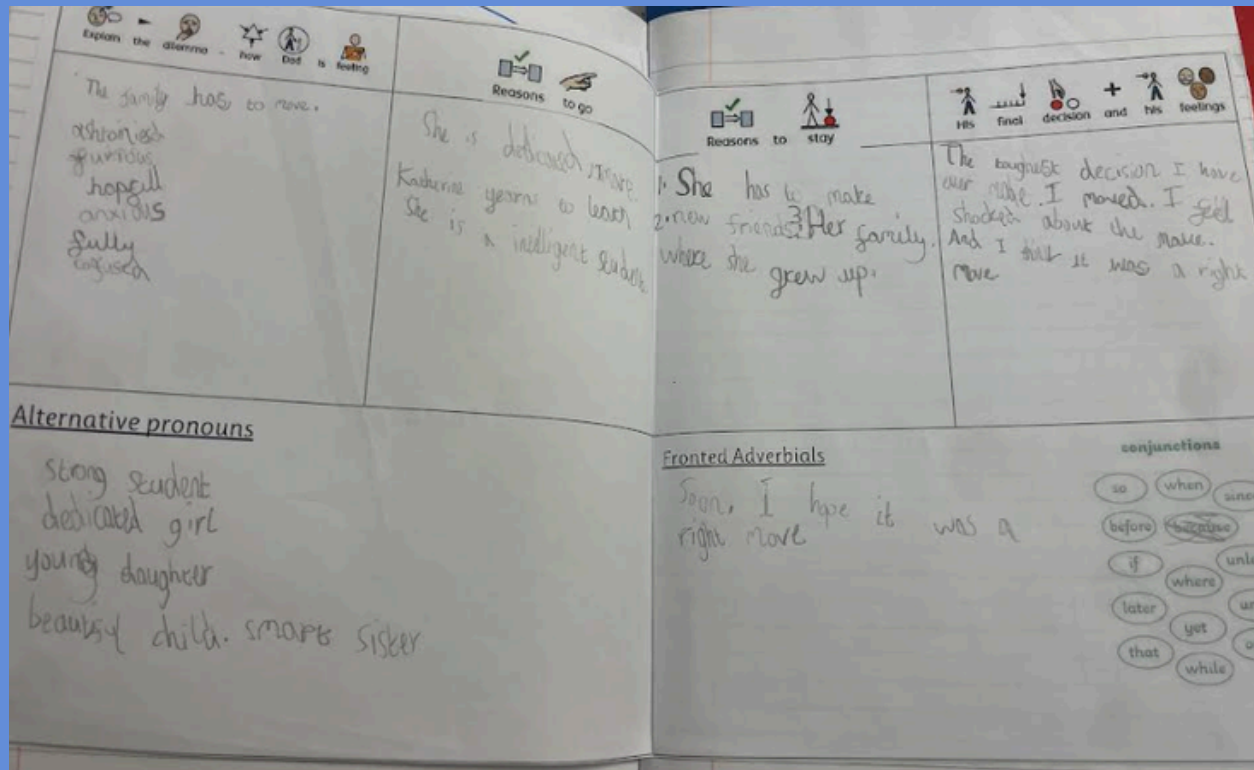 Explain the dilemma - how Dad is feeling
The family has to move.
ashamied
furious
hopfull
anxious
fully
confused
Reasons to go
She is dedicated, smart.
Katherine yearns to learn
She is a intelligent student
Reasons to stay
1. She has to make
2. new friends 3. Her family.
where she grew up.
His final decision and his feelings
The toughest decision I have
ever made. I moved. I feel
shocked about the move.
And I still it was a right
move
Alternative pronouns
strong student
dedicated girl
young daughter
beautiful child. smart sister
Fronted Adverbials
Soon, I hope it was a
right move
conjunctions
so when
before because
if
where
later
yet
that
while